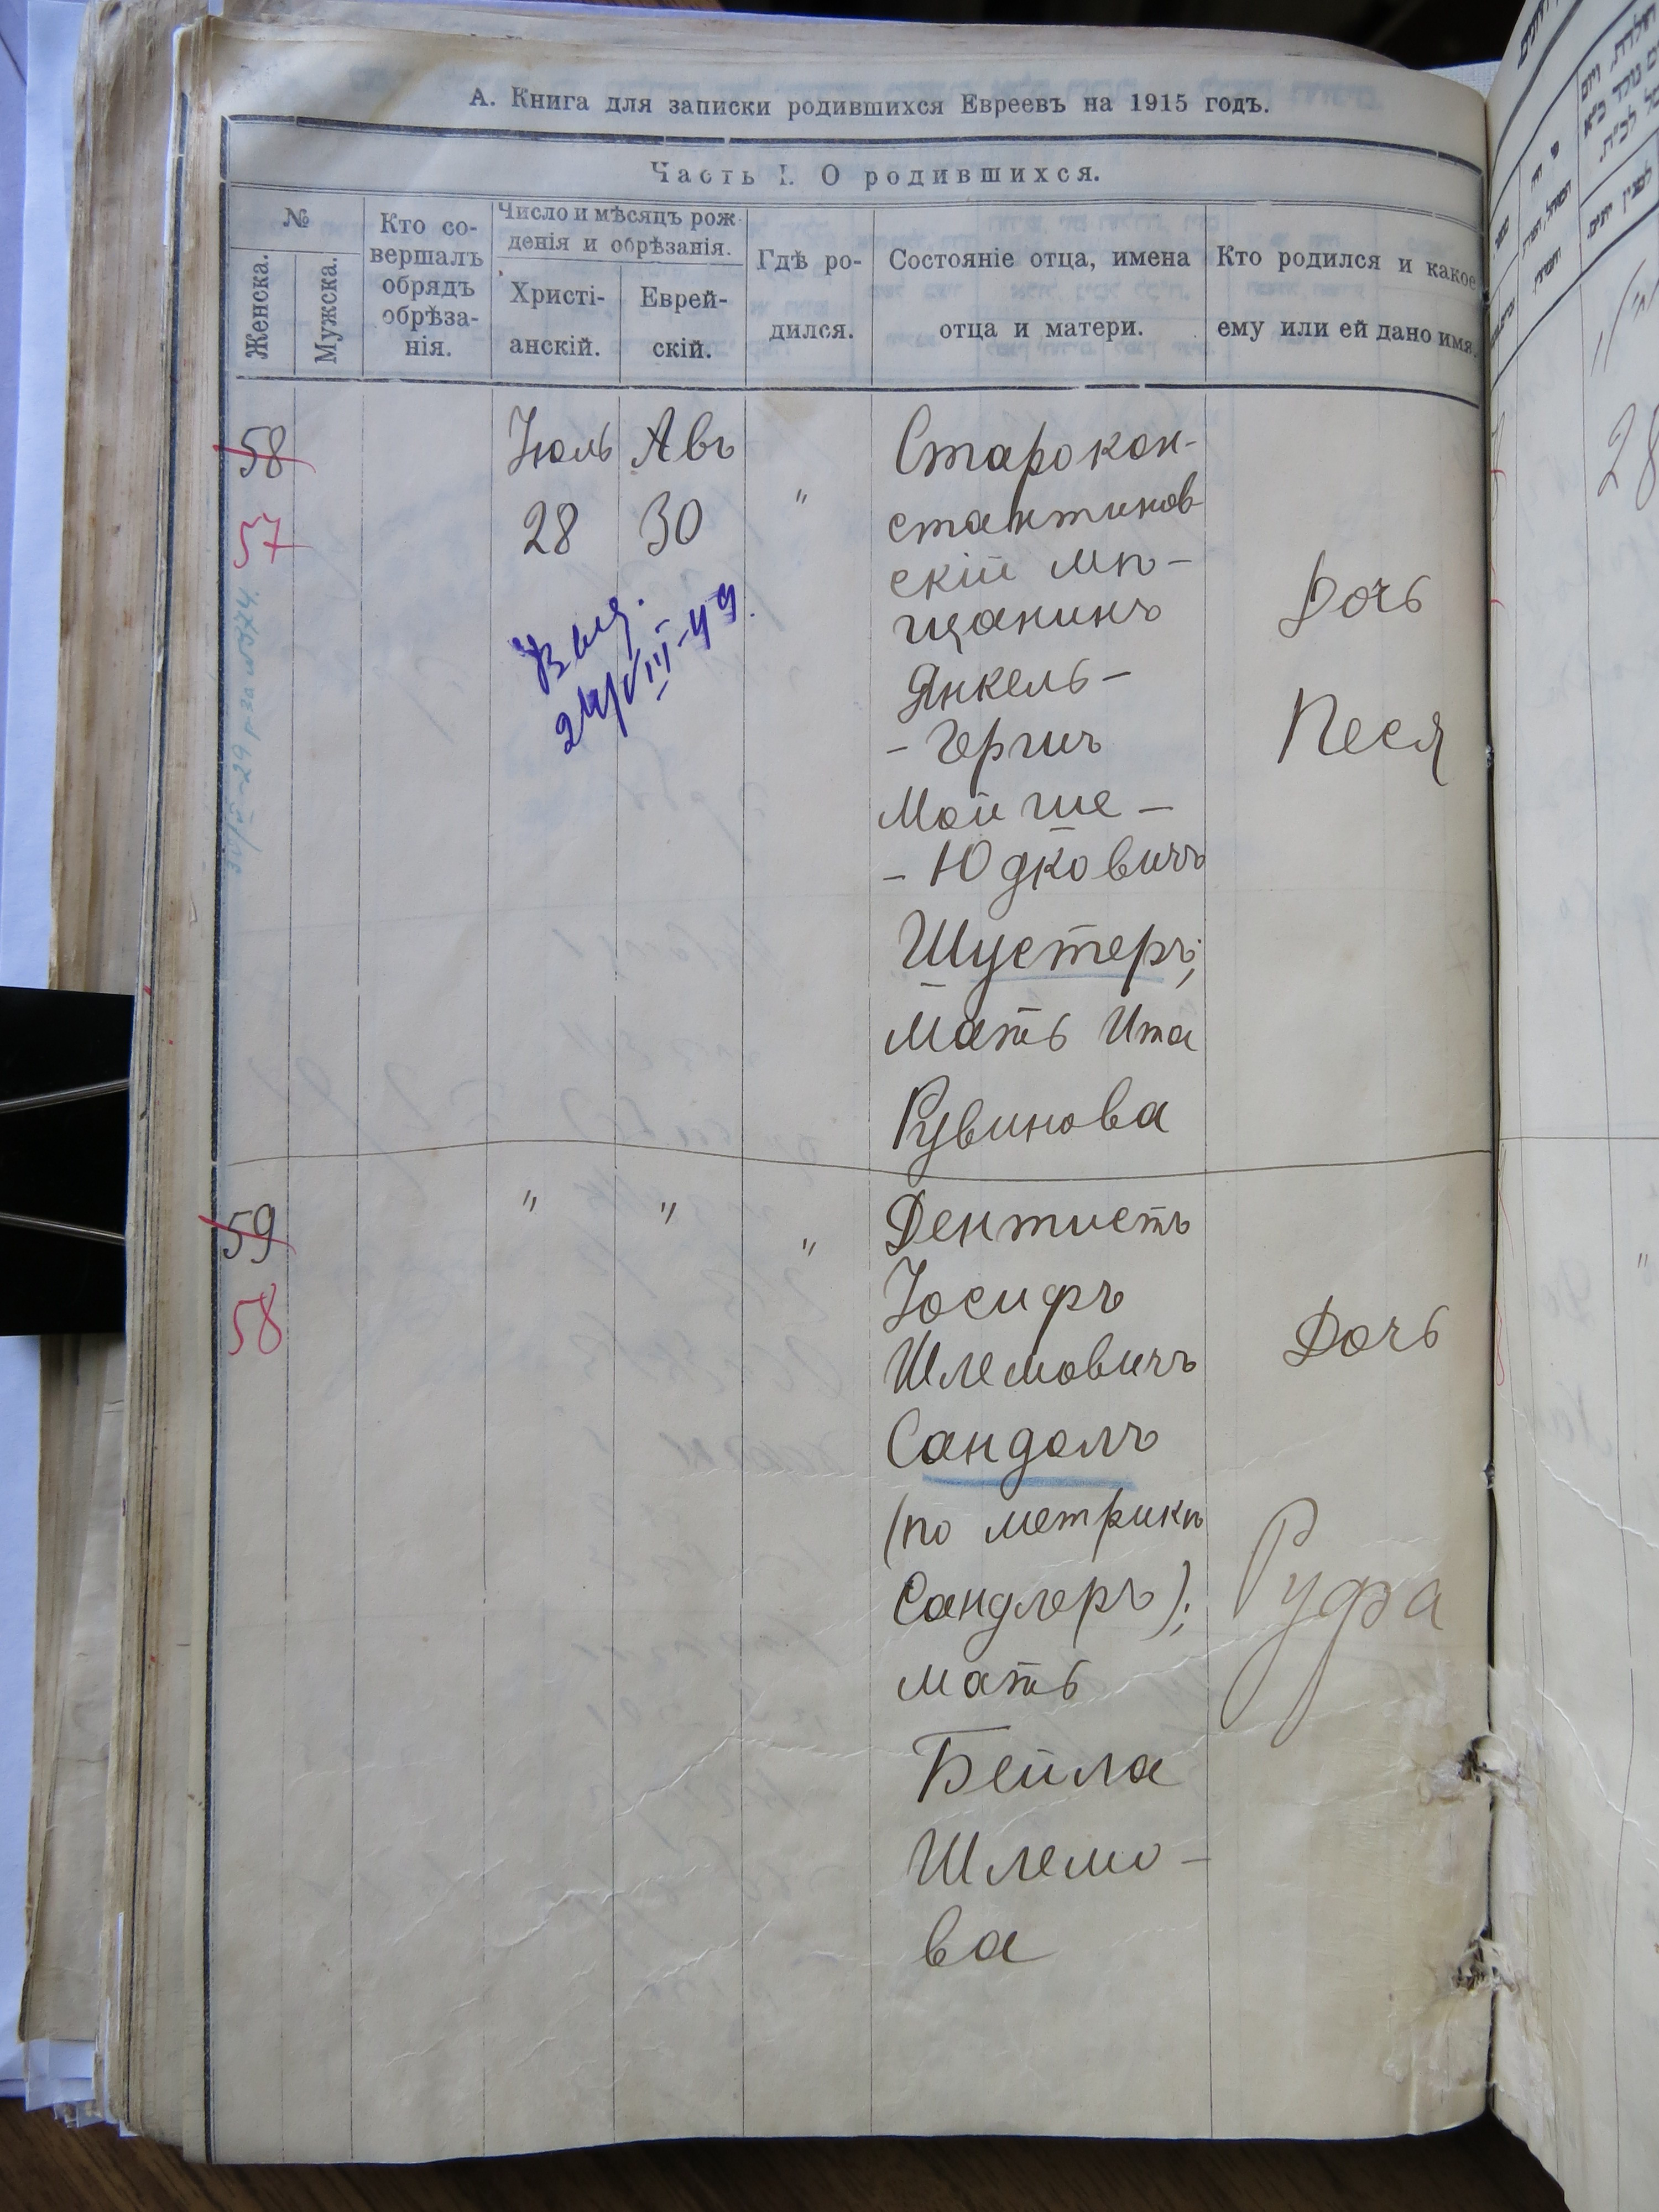 А. Книга для записки родившихся Евреевъ на 1915 годъ.
Часть I. О родившихся.
№
Женска.
Мужска.
Кто со-
вершалъ
обрядъ
обрѣза-
нія.
Число и мѣсяцъ рож-
денія и обрѣзанія.
Христі-
анскій.
Еврей-
скій.
Гдѣ ро-
дился.
Состояніе отца, имена
отца и матери.
Кто родился и какое
ему или ей дано имя.
58
57
Іюль
28
Авъ
30
"
Выд.
24/VIII-49.
Старокон-
стантинов-
скій мѣ-
щанинъ
Янкель-
-Гершъ
Мойше-
-Юдковичъ
Шустеръ;
мать Ита
Рувинова
Дочь
Песя
59
58
"
"
"
Дентистъ
Іосифъ
Шлемовичъ
Сандалъ
(по метрикѣ
Сандлеръ);
мать
Бейла
Шлемо-
ва
Дочь
Руфа
28
"